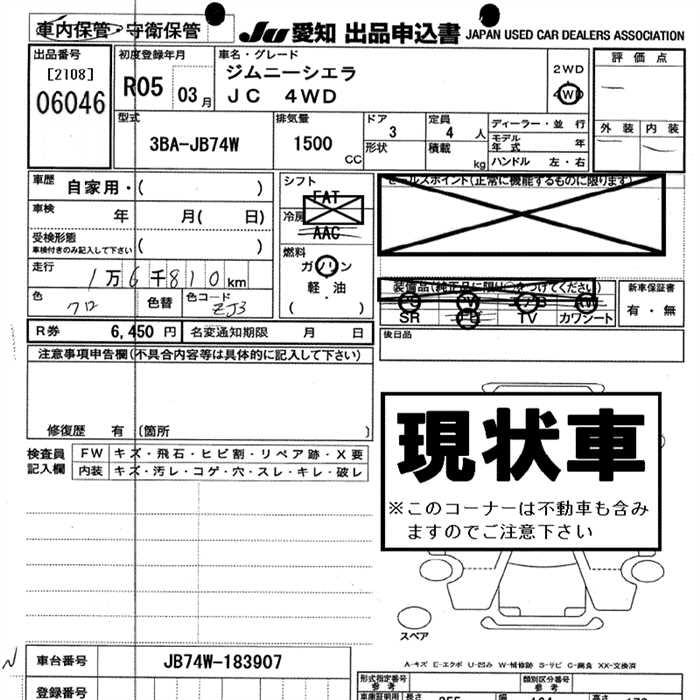 車内保管・守衛保管
JU 愛知 出品申込書 JAPAN USED CAR DEALERS ASSOCIATION
出品番号
[2108]
06046
初度登録年月
R05 03月
車名・グレード
ジムニーシエラ
JC 4WD
2WD
4WD
評価点
外装 内装
型式
3BA-JB74W
排気量
1500 CC
ドア
3
形状
定員
4 人
積載 kg
ディーラー・並行
モデル年式 年
ハンドル 左・右
車歴 自家用・( )
車検 年 月( 日)
受検形態
車検付きのみ記入して下さい ( )
走行 1万6千810km
色 クロ 色替 色コード ZJ3
シフト
FAT
冷房
AAC
燃料
ガソリン
軽・油
( )
セールスポイント(正常に機能するものに限ります)
装備品(純正品に限り○をつけてください)
SR TV カワシート
新車保証書
有・無
後日品
R券 6,450円 名変通知期限 月 日
注意事項申告欄(不具合内容等は具体的に記入して下さい)
修復歴 有 〔箇所 〕
検査員記入欄
FW キズ・飛石・ヒビ割・リペア跡・X要
内装 キズ・汚レ・コゲ・穴・スレ・キレ・破レ
現状車
※このコーナーは不動車も含み
ますのでご注意下さい
スペア
A-キズ E-エクボ U-凹み W-補修跡 S-サビ C-腐食 XX-交換済
N
車台番号 JB74W-183907
登録番号
形式指定番号
参考
類別区分番号
参考